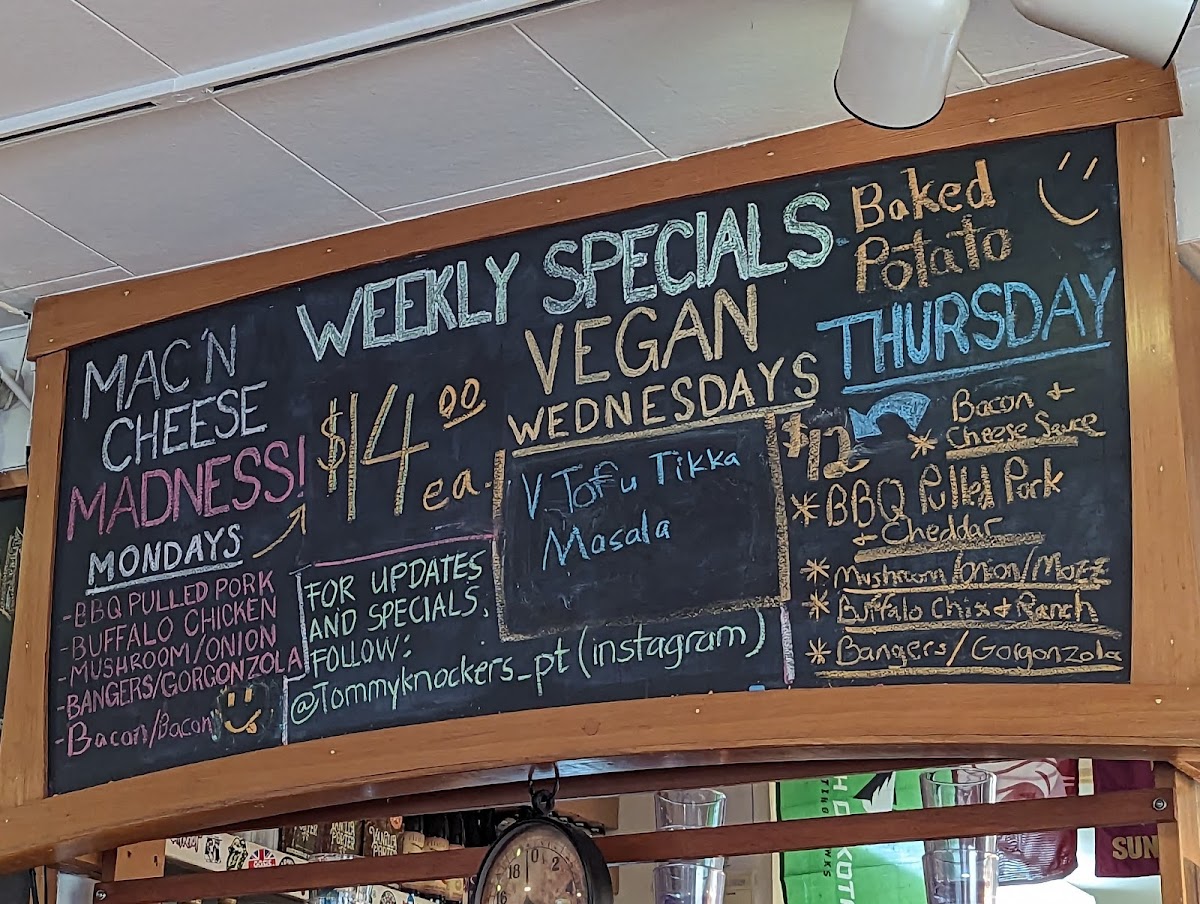 WEEKLY SPECIALS
MAC 'N
CHEESE
MADNESS!
MONDAYS
$14.00
ea.
-BBQ PULLED PORK
-BUFFALO CHICKEN
-MUSHROOM/ONION
-BANGERS/GORGONZOLA
-Bacon/Bacon
FOR UPDATES
AND SPECIALS,
FOLLOW:
@Tommyknockers_pt (instagram)
VEGAN
WEDNESDAYS
V Tofu Tikka
Masala
Baked
Potato
THURSDAY
$12
* Bacon +
Cheese Sauce
* BBQ Pulled Pork
+ Cheddar
* Mushroom/onion/Mozz
* Buffalo Chix + Ranch
* Bangers/Gorgonzola
18 0 2
16
SUN